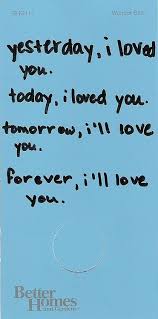 yesterday, i loved
you.
today, i loved you.
tomorrow, i'll love
you.
forever, i'll love
you.
Better
Homes
and Gardens